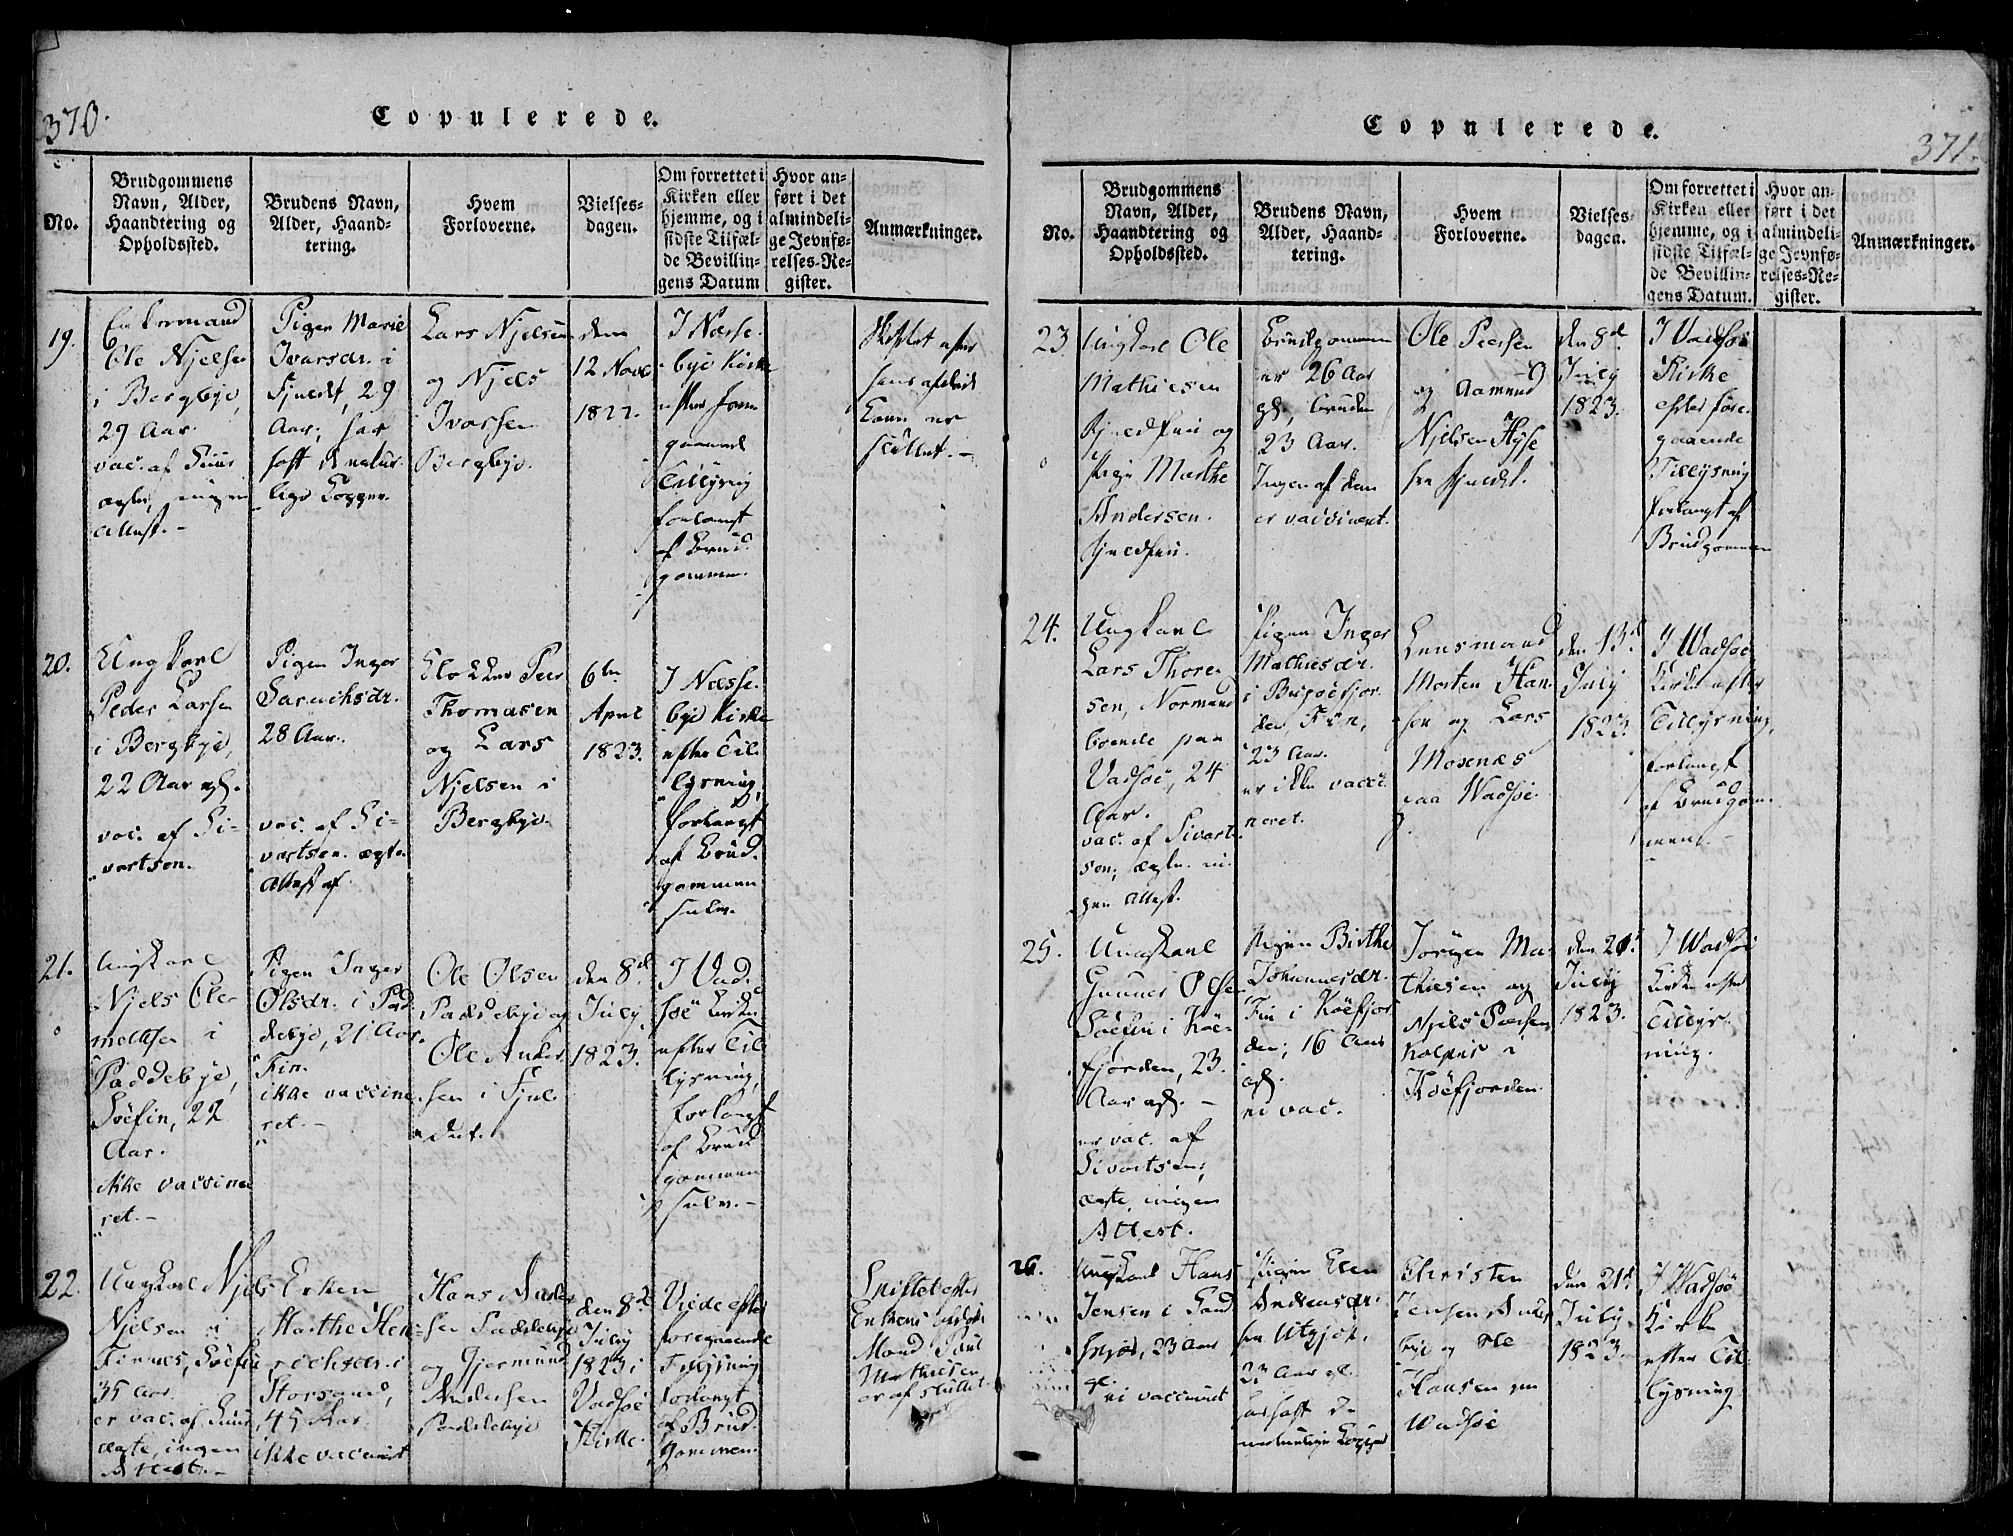 370.
Copulerede.
No.
Brudgommens
Navn, Alder,
Haandtering og
Opholdssted.
Brudens Navn,
Alder, Haand-
tering.
Hvem
Forloverne.
Vielses-
dagen.
Om forrettet i
Kirken eller
hjemme, og i
sidste Tilfæl-
de Bevillin-
gens Datum
Hvor an-
ført i det
almindeli-
ge Jevnfø-
relses-Re-
gister.
Anmærkninger.
19.
Enkemand
Ole Njelsen
i Bergbye,
29 Aar.
vac. af
ægte, ingen
Attest.-
Pigen Marie
Ivarsdr. i
29
Aar; har
haft de natur-
lige Kopper.
Lars Njelsen
og Njels
Ivarsen
Bergbye.
den
12 Novb
1822.
I Næsse-
bye Kirke
efter fore-
gaaende
Tillysning
forlangt
af Brud-
gommen.
Skiftet efter
hans afdøde
Kone er
sluttet.-
20.
Ungkarl
Peder Larsen
i Bergbye,
22 Aar gl.
vac. af Si-
vertsen.
Pigen Inger
28 Aar.
vac. af Si-
vertsen. ægte
Attest af.
Klokker Peer
Thomasen
og Lars
Njelsen i
Bergbye.
6te
April
1823.
I Næsse-
bye Kirke
efter Til-
lysning,
forlangt
af Brud-
gommen
selv.
21.
Ungkarl
Njels Cle-
metsen i
Paddebye,
Søefin, 22
Aar.
ikke vaccine-
ret.-
Pigen Inger
Olsdr. i Pad-
debye, 21 Aar.
Fin.
ikke vaccine-
ret.-
Ole Olsen
Paddebye og
Ole Ander-
sen i
den 8d.
July
1823.
I Vad-
søe Kirke
efter Til-
lysning,
forlangt
af Brud-
gommen
selv.-
22.
Ungkarl Njels
Njelsen i
Søefin
35 Aar.
er vac. af
ægte, ingen
Attest.-
Enken
Marthe Hen-
richsdr. i
Storsand,
45 Aar.
ikke vaccineret
Hans Ander-
sen Paddebye
og Gjermund
Andersen
Paddebye
den 8d
July
1823 i
Vadsøe
Kirke.
Viede efter
foregaaende
Tillysning
forlangt
af Brud-
gommen.
Skiftet efter
Enkens afdøde
Mand Poul
Mathisen
er afsluttet.
371.
Copulerede.
No.
Brudgommens
Navn, Alder,
Haandtering og
Opholdssted.
Brudens Navn,
Alder, Haand-
tering.
Hvem
Forloverne.
Vielses-
dagen.
Om forrettet i
Kirken eller
hjemme, og i
sidste Tilfæl-
de Bevillin-
gens Datum.
Hvor an-
ført i det
almindeli-
ge Jevnfø-
relses-Re-
gister.
Anmærkninger.
23
Ungkarl Ole
Mathiesen
og
Pige Marthe
Andersen.
Brudgommen
er 26 Aar
gl., Bruden
23 Aar.
Ingen af dem
er vaccineret.
Ole Peersen
og Aamund
Njelsen
fra
den 8d.
July
1823.
I Vadsøe
Kirke
efter fore-
gaaende
Tillysning
forlangt af
Brudgommen
24.
Ungkarl
Lars Thore-
sen, Normand
boende paa
Vadsøe, 24
Aar.
vac. af Sivert-
sen; ægte, in-
gen Attest.
Pigen Inger
Mathiesdr.
i
den, Fin,
23 Aar.
er ikke vacci-
neret.
Lensmand
Morten Han-
sen og Lars
Mosenæs
paa Wadsøe.
den 13d
July
1823.
I Wadsøe
Kirke efter
Tillysning,
forlangt
af Brudgom-
men.
25.
Ungkarl
Gunner Olsen
Søefin i Køe-
fjorden, 23.
Aar gl. -
er vac. af
Sivertsen;
ægte, ingen
Attest.
Pigen Birthe
Johannesdr.
Fin i Køefjor-
den; 16 Aar
gl.
ei vac.
Jørgen Ma-
thiesen og
Njels Peersen
i
Køefjorden.
den 21d
July
1823.
I Wadsøe
Kirke efter
Tillys-
ning.
26.
Ungkarl Hans
Jensen i
23 Aar
gl.
ei vaccineret
Pigen Elen
Andreasdr.
fra
23 Aar gl.
har haft de
naturlige Kopper
Christen
Jensen
bye og Ole
Hansen paa
Wadsøe
den 21d
July
1823.
I Wadsøe
Kirke
efter Til-
lysning.